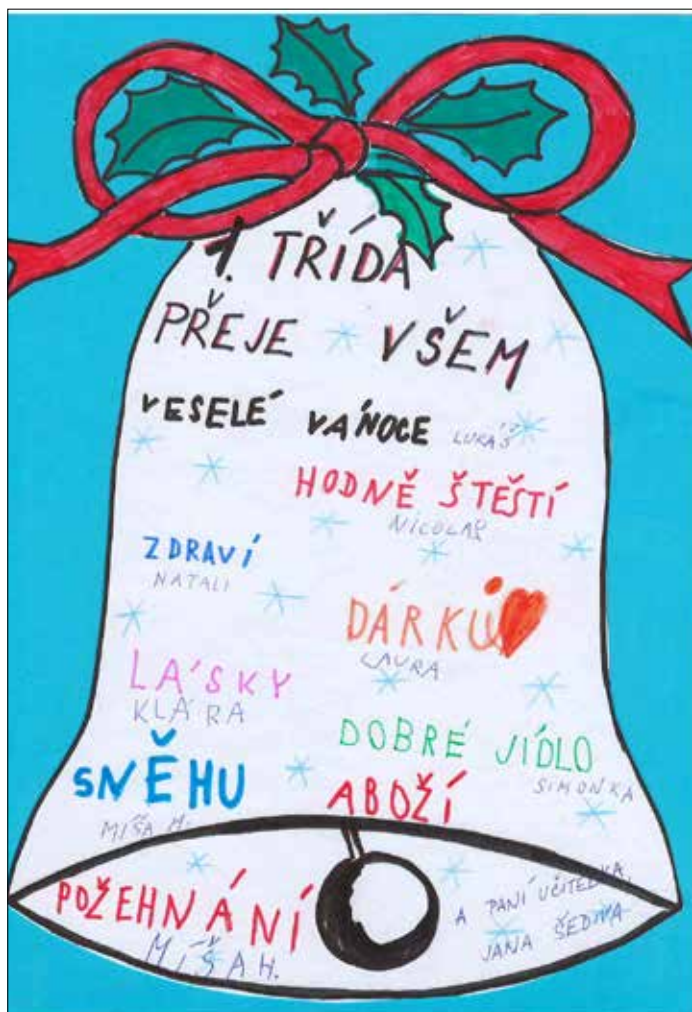 1. TŘÍDA
PŘEJE VŠEM
VESELÉ VÁNOCE LUKÁŠ
HODNĚ ŠTĚSTÍ
NICOLAS
ZDRAVÍ
NATALI
DÁRKŮ
LAURA
LÁSKY
KLÁRA
DOBRÉ JÍDLO
SIMONKA
SNĚHU
MÍŠA H.
ABOŽÍ
POŽEHNÁNÍ
MÍŠA H.
A PANÍ UČITELKA
JANA